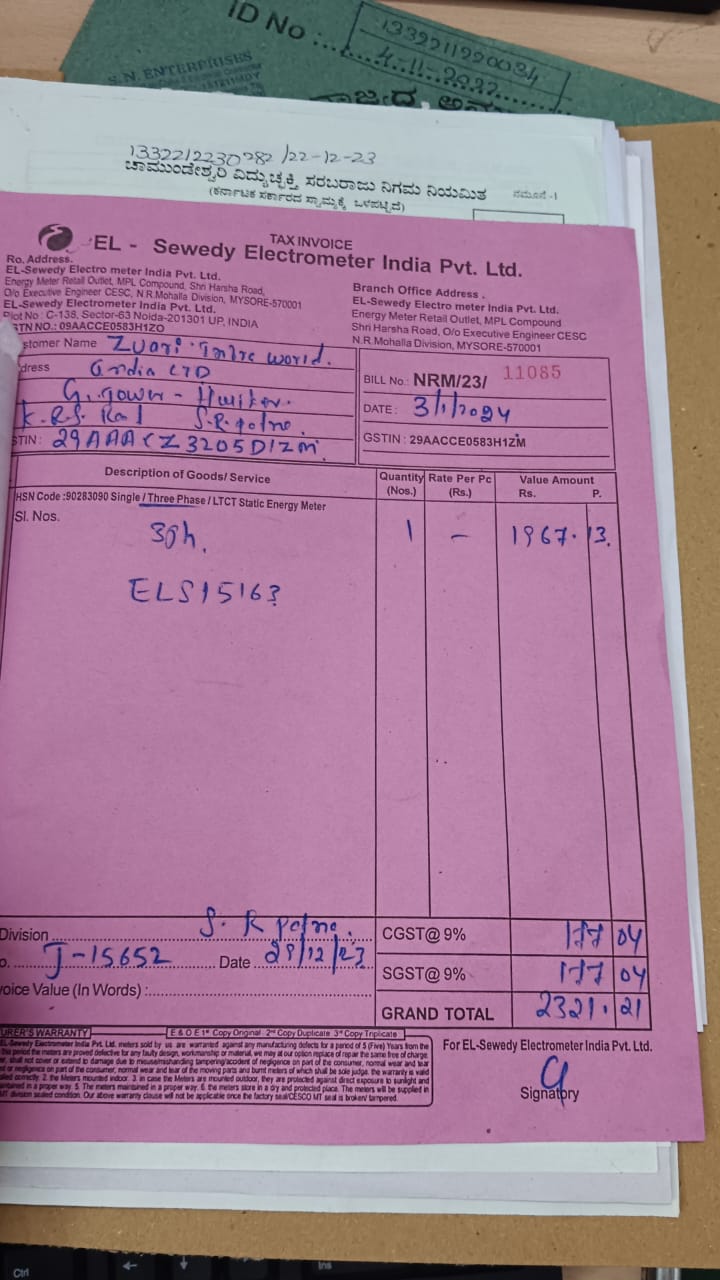 ID No : 1332211220034
4-11-2022
S.N. ENTERPRISES
1332212230282 /22-12-23
ಚಾಮುಂಡೇಶ್ವರಿ ವಿದ್ಯುಚ್ಛಕ್ತಿ ಸರಬರಾಜು ನಿಗಮ ನಿಯಮಿತ
ನಮೂನೆ -1
(ಕರ್ನಾಟಕ ಸರ್ಕಾರದ ಸ್ವಾಮ್ಯಕ್ಕೆ ಒಳಪಟ್ಟಿದೆ)
TAX INVOICE
EL - Sewedy Electrometer India Pvt. Ltd.
Ro. Address.
EL-Sewedy Electro meter India Pvt. Ltd.
Energy Meter Retail Outlet, MPL Compound, Shri Harsha Road,
O/o Executive Engineer CESC, N.R.Mohalla Division, MYSORE-570001
EL-Sewedy Electrometer India Pvt. Ltd.
Plot No : C-138, Sector-63 Noida-201301 UP, INDIA
STN NO.: 09AACCE0583H1ZO
Branch Office Address .
EL-Sewedy Electro meter India Pvt. Ltd.
Energy Meter Retail Outlet, MPL Compound
Shri Harsha Road, O/o Executive Engineer CESC
N.R.Mohalla Division, MYSORE-570001
stomer Name Zuari world.
dress India LTD
K.R.S. Road S.R.patna
STIN : 29AAACZ3205D1ZM
BILL No.: NRM/23/ 11085
DATE : 3/1/2024
GSTIN : 29AACCE0583H1ZM
Description of Goods/ Service
Quantity (Nos.)
Rate Per Pc (Rs.)
Value Amount Rs. P.
HSN Code :90283090 Single / Three Phase / LTCT Static Energy Meter
Sl. Nos.
3ph. 1 - 1967. 13.
ELS15163
Division S. R patna.
CGST@ 9% 177 04
o. J-15652 Date 28/12/23
SGST@ 9% 177 04
voice Value (In Words) :
GRAND TOTAL 2321. 21
URER'S WARRANTY
E & O E 1st Copy Original 2nd Copy Duplicate 3rd Copy Triplicate
EL-Sewedy Electrometer India Pvt. Ltd. meters sold by us are warranted against any manufacturing defects for a period of 5 (Five) Years from the
this period the meters are proved defective for any faulty design, workmanship or material, we may at our option replace of repair the same free of charge.
er, shall not cover or extend to damage due to misuse/mishandling tampering/accident of negligence on part of the consumer, normal wear and tear
or negligence on part of the consumer, normal wear and tear of the moving parts and burnt meters of which shall be sole judge. the warranty is valid
alled correctly. 2. the Meters mounted indoor. 3. in case the Meters are mounted outdoor, they are protected against direct exposure to sunlight and
ntained in a proper way. 5. The meters maintained in a proper way. 6. the meters store in a dry and protected place. The meters will be supplied in
MT division sealed condition. Our above warranty clause will not be applicable once the factory seal/CESCO MT seal is broken/ tampered.
For EL-Sewedy Electrometer India Pvt. Ltd.
Signatory
Ctrl
Ins